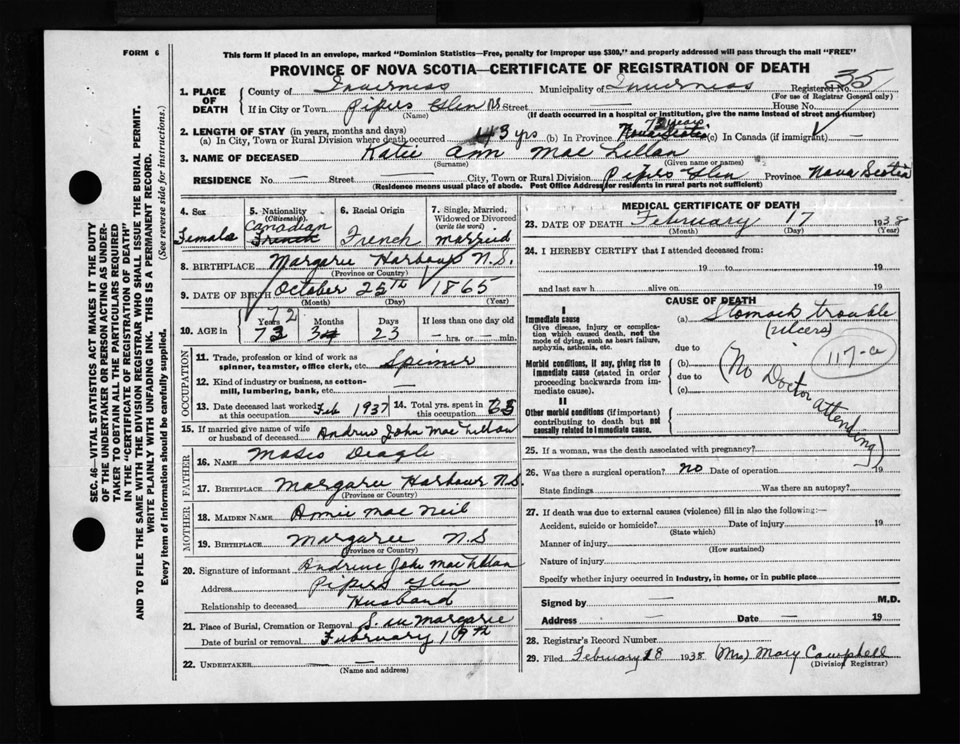 FORM 6
This form if placed in an envelope, marked "Dominion Statistics—Free, penalty for improper use $300," and properly addressed will pass through the mail "FREE"
PROVINCE OF NOVA SCOTIA—CERTIFICATE OF REGISTRATION OF DEATH
35
1. PLACE OF DEATH County of Inverness Municipality of Inverness Registered No.
(For use of Registrar General only)
If in City or Town Pipers Glen Street House No.
(Name) (If death occurred in a hospital or institution, give the name instead of street and number)
2. LENGTH OF STAY (in years, months and days) 72 years
(a) In City, Town or Rural Division where death occurred 43 yrs (b) In Province Nova Scotia (c) In Canada (if immigrant) —
3. NAME OF DECEASED Katie Ann Mac Lellan
(Surname) (Given name or names)
RESIDENCE No. — Street — City, Town or Rural Division Pipers Glen Province Nova Scotia
(Residence means usual place of abode. Post Office Address for residents in rural parts not sufficient)
4. Sex Female
5. Nationality (Citizenship) Canadian French
6. Racial Origin French
7. Single, Married, Widowed or Divorced (write the word) married
8. BIRTHPLACE Margaree Harbour N.S.
(Province or Country)
9. DATE OF BIRTH October 25th 1865
(Month) (Day) (Year)
72
10. AGE in Years 73 Months 3 Days 23 If less than one day old
hrs. or min.
OCCUPATION
11. Trade, profession or kind of work as spinner, teamster, office clerk, etc. Spinner
12. Kind of industry or business, as cotton-mill, lumbering, bank, etc. —
13. Date deceased last worked at this occupation Feb 1937 14. Total yrs. spent in this occupation
15. If married give name of wife or husband of deceased Andrew John Mac Lellan
FATHER
16. NAME Moses Deagle
17. BIRTHPLACE Margaree Harbour N.S.
(Province or Country)
MOTHER
18. MAIDEN NAME Annie Mac Neil
19. BIRTHPLACE Margaree N.S
(Province or Country)
20. Signature of informant Andrew John Mac Lellan
Address Pipers Glen
Relationship to deceased Husband
21. Place of Burial, Cremation or Removal S. W Margaree
Date of burial or removal February 19th
22. UNDERTAKER —
(Name and address)
MEDICAL CERTIFICATE OF DEATH
23. DATE OF DEATH February 17 1938
(Month) (Day) (Year)
24. I HEREBY CERTIFY that I attended deceased from:
19 to 19
and last saw h alive on 19
CAUSE OF DEATH
I
Immediate cause (a) Stomach trouble
Give disease, injury or complication which caused death, not the mode of dying, such as heart failure, asphyxia, asthenia, etc.
(ulcers)
due to
117-a
Morbid conditions, if any, giving rise to immediate cause (stated in order proceeding backwards from immediate cause).
(b)
due to
(c)
(No Doctor attending)
II
Other morbid conditions (if important) contributing to death but not causally related to immediate cause.
25. If a woman, was the death associated with pregnancy?
26. Was there a surgical operation? no Date of operation 19
State findings Was there an autopsy?
27. If death was due to external causes (violence) fill in also the following:—
Accident, suicide or homicide? Date of injury 19
(State which)
Manner of injury
(How sustained)
Nature of injury
Specify whether injury occurred in industry, in home, or in public place
Signed by — M.D.
Address — Date — 19
28. Registrar's Record Number
29. Filed February 18 1938 (Mrs) Mary Campbell
(Division Registrar)
SEC. 46—VITAL STATISTICS ACT MAKES IT THE DUTY
OF THE UNDERTAKER OR PERSON ACTING AS UNDERTAKER TO OBTAIN ALL THE PARTICULARS REQUIRED
IN THE "CERTIFICATE OF REGISTRATION OF DEATH"
AND TO FILE THE SAME WITH THE DIVISION REGISTRAR WHO SHALL ISSUE THE BURIAL PERMIT.
WRITE PLAINLY WITH UNFADING INK. THIS IS A PERMANENT RECORD.
Every item of information should be carefully supplied. (See reverse side for instructions.)